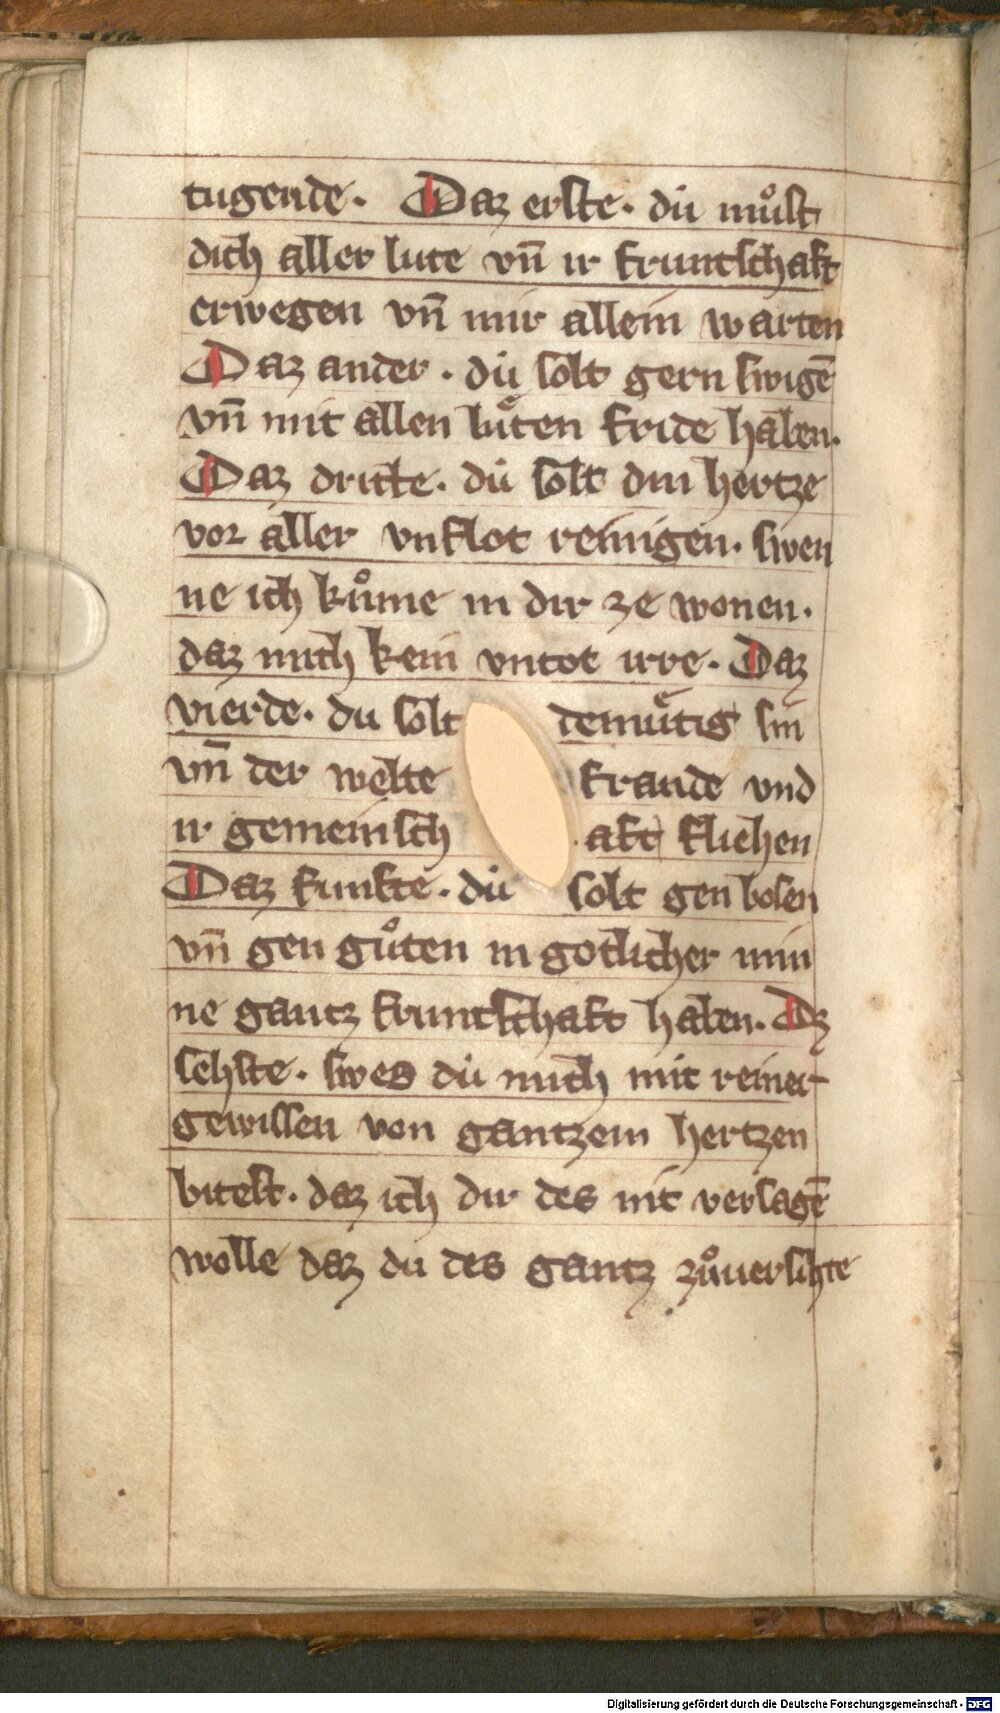 tugende. Daz erste. du můst
dich aller lute vn̄ ir fruntschaft
erwegen vn̄ mir allein warten
Daz ander. du solt gern swigē
vn̄ mit allen lu̍ten fride haben.
Daz dritte. du solt din hertze
vor aller vnflot reinigen. swen
ne ich kůme in dir ze wonen.
daz mich kein vntot irre. Daz
vierde. du solt demu̍tig sin
vn̄ der welte fraude vnd
ir gemeinsch aft fliehen
Daz funfte. du solt gen bosen
vn̄ gen gůten in gotlicher min
ne gantz fruntschaft haben. Dz
sehste. swes du mich mit reiner
gewissen von gantzem hertzen
bitest. daz ich dir des nit versagē
wolle daz du des gantz zůuersihte
Digitalisierung gefördert durch die Deutsche Forschungsgemeinschaft - DFG